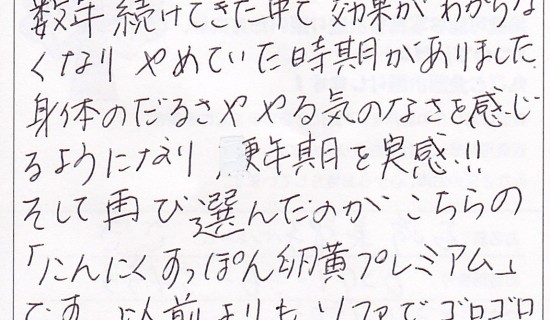 数年 続けてきた中で 効果が わからな
くなり やめていた時期がありました
身体のだるさや やる気のなさを感じ
るようになり、更年期を実感!!
そして再び選んだのが こちらの
「にんにくすっぽん卵黄プレミアム」
です 以前よりも ソファでゴロゴロ